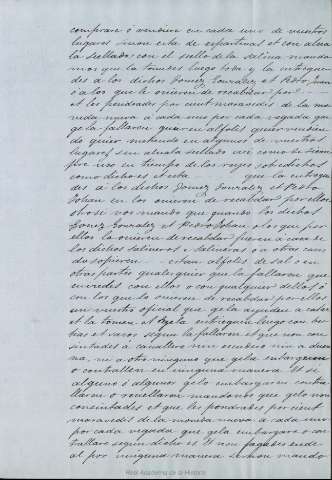 comprare o vendiere en cada uno de vuestros
lugares sinon esta de espartinas et con alvala
sellado con el sello de la salina manda
mos que la tomedes luego toda y la entregue
des a los dichos Gomez Gonzalez et Pedro Juan
o a los que lo ovieren de recabdar por
et les pendrades por cient maravedis de la mo
neda nueva a cada uno por cada vegada que
ge la fallaren quier en alfolis quier vendien
do quier metiendo en algunos de vuestros
lugares sin alvala sellado así como se siem
pre uso en tiempo de los reyes sobredichos
como dicho es et esta que la entregue
des a los dichos Gomez Gonzalez et Pedro
Johan en los ovieren de recabdar por ellos
otrosi vos mando que quando los dichos
Gomez Gonzalez et Pedro Johan o los que por
ellos la ovieren de recabdar fueren a casa de
los dichos salineros o salineras o a otras
do sopieren estan alfolis de sal o en
otras partes qualesquier que la fallaren que
enviedes con ellos o con qualquier dellos ó
con los que lo ovieren de recabdar por ellos
un vuestro oficial que gela ayuden a catar
et la tomen et gela entreguen luego con bes
tias et vaso segun la fallaren et que non con
sintades a cavallero nin escudero nin a due
na, ni a otro ninguno que gela embarguen
o contrallen en ninguna manera. Et si
alguno ó algunos gelo embargaren contra
llaren o revellaren mandovos que gelo non
consintades et que les pendrades por cient
maravedis de la moneda nueva a cada uno
por cada vegada que gela embargare o con
trallare según dicho es. Et non fagades ende
al por ninguna manera si non mando
Real Academia de la Historia